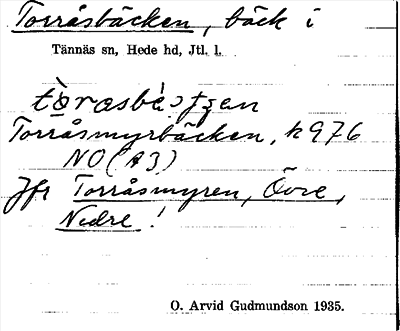 Torråsbäcken, bäck i
Tännäs sn, Hede hd, Jtl. l.
Torråsmyrbäcken, k 976
NO (A3)
Jfr Torråsmyren, Övre,
Nedre!
O. Arvid Gudmundson 1935.